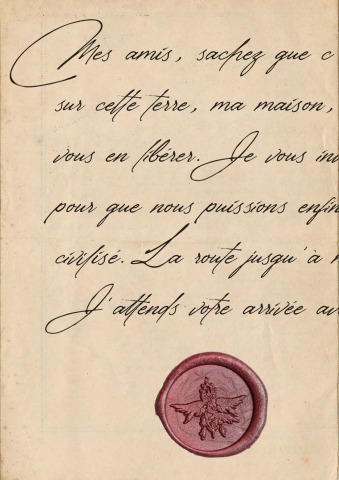 Mes amis, sachez que c
sur cette terre, ma maison,
vous en libérer. Je vous in
pour que nous puissions enfin
civilisé. La route jusqu'à
J'attends votre arrivée av